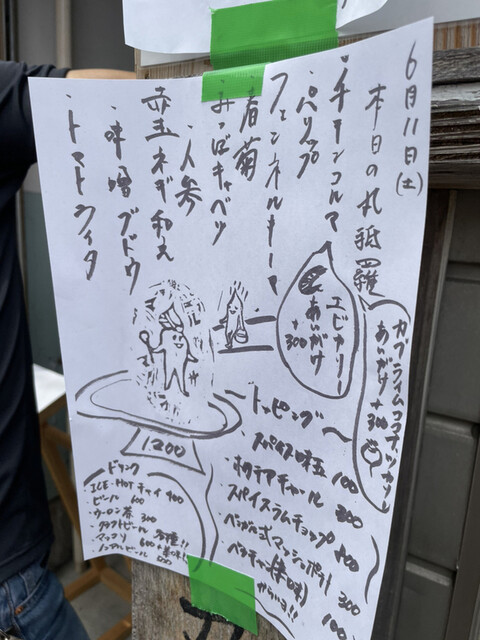 6月11日(土)
本日の札抵羅
・チキンコルマ
・パリップ
・フェンネルキーマ
・春菊
・みつばキャベツ
・人参
赤玉ネギ和え
・味噌ブドウ
・トマトライタ
カブライムココナッツカリー
あいがけ +300
エビカリー
あいがけ
+300
1200
トッピング
スパイス味玉 100
ホタテアチャール 300
スパイスラムチョップ 400
ベンガル式マッシュポテト 300
100
ドリンク
ICE・HOT チャイ 400
・ビール 600
・ウーロン茶 300
・クラフトビール 各種!!
・マッコリ 600
・ノンアルビール